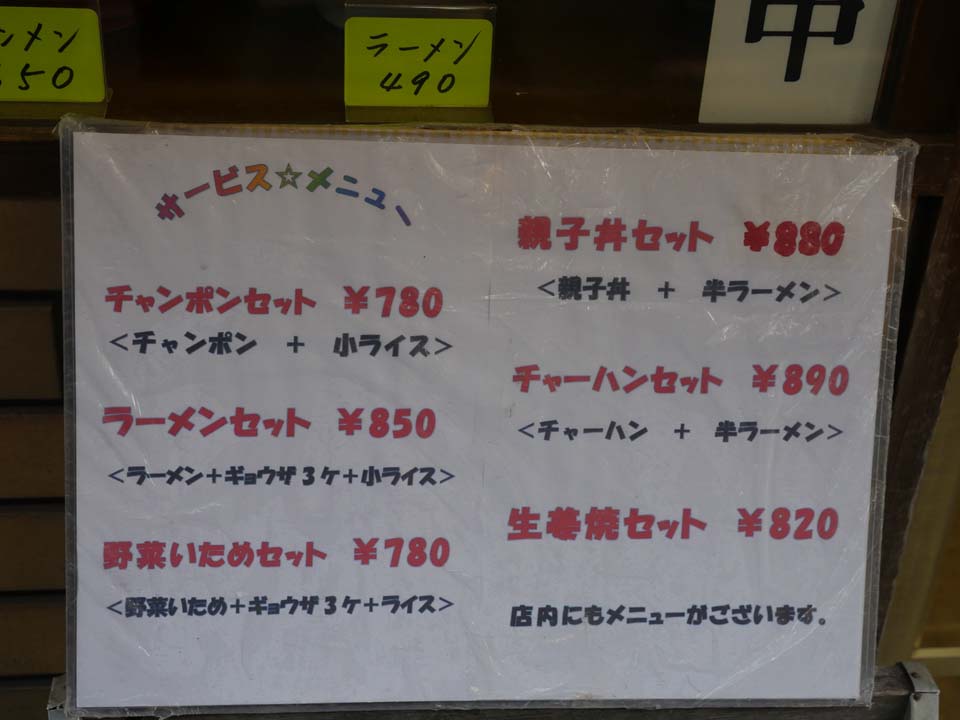 ラーメン
490
中
サービス☆メニュー
チャンポンセット ¥780
<チャンポン + 小ライス>
ラーメンセット ¥850
<ラーメン+ギョウザ3ケ+小ライス>
野菜いためセット ¥780
<野菜いため+ギョウザ3ケ+ライス>
親子丼セット ¥880
<親子丼 + 半ラーメン>
チャーハンセット ¥890
<チャーハン + 半ラーメン>
生姜焼セット ¥820
店内にもメニューがございます。